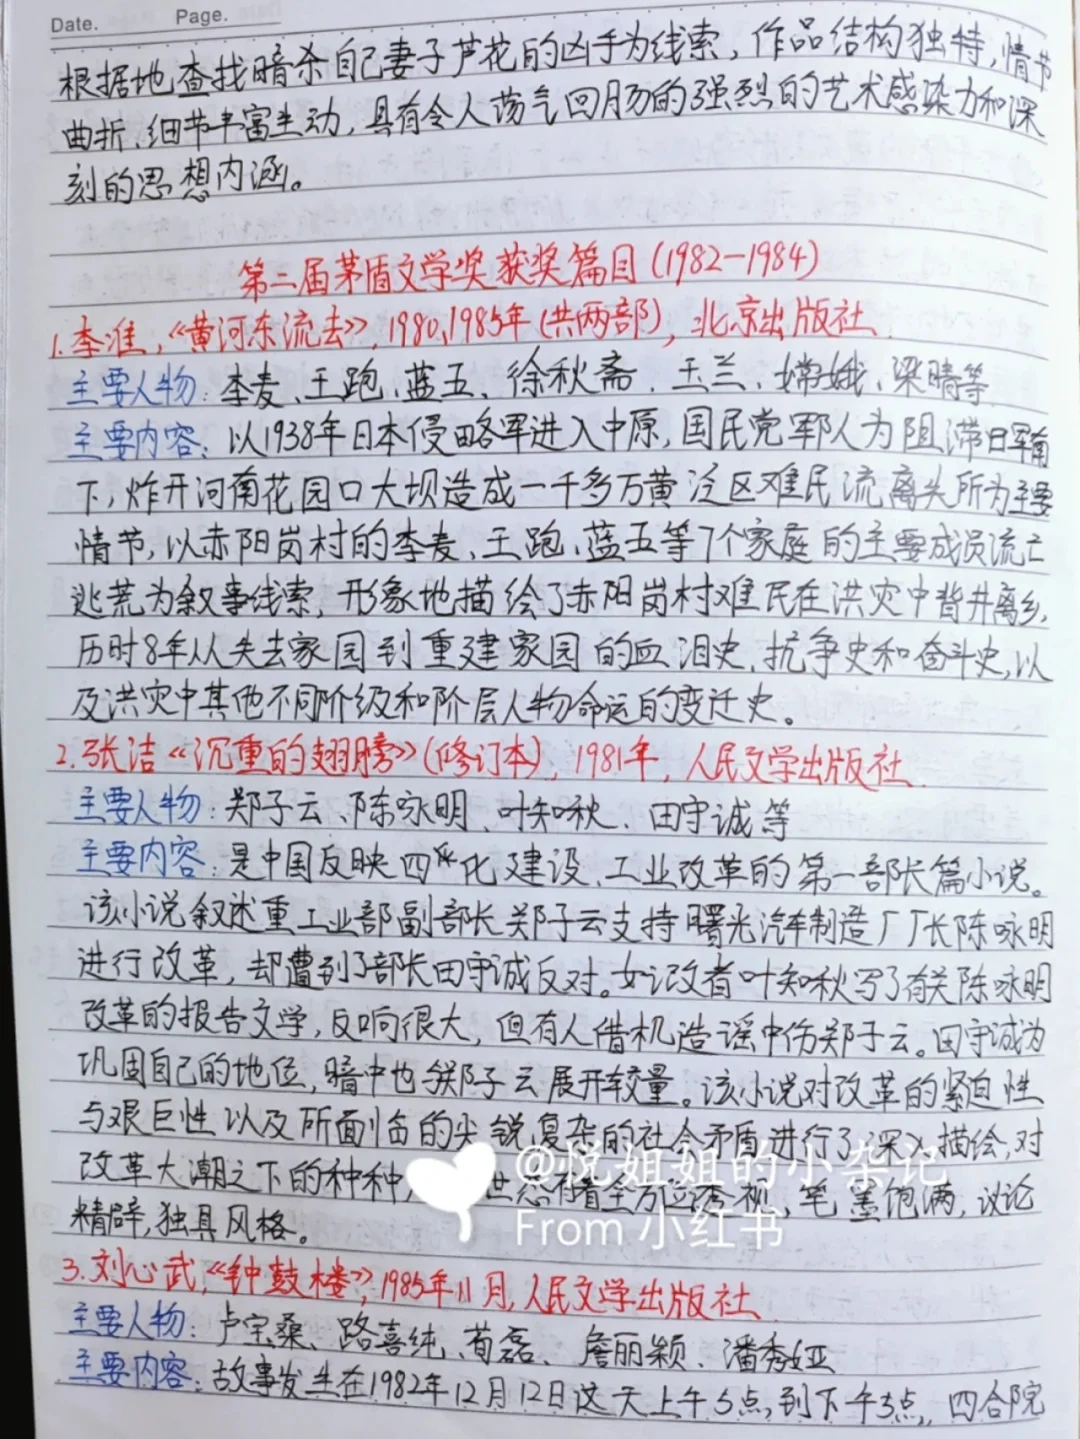 Date. Page.
根据地查找暗杀自己妻子芦花的凶手为线索，作品结构独特，情节
曲折、细节丰富生动，具有令人荡气回肠的强烈的艺术感染力和深
刻的思想内涵。
第二届茅盾文学奖获奖篇目(1982-1984)
1.李准，《黄河东流去》，1980、1985年(共两部)，北京出版社.
主要人物：李麦、王跑、蓝五、徐秋斋、玉兰、嫦娥、梁晴等
主要内容：以1938年日本侵略军进入中原，国民党军队人为阻滞日军南
下，炸开河南花园口大坝造成一千多万黄泛区难民流离失所为主要
情节，以赤阳岗村的李麦、王跑、蓝五等7个家庭的主要成员流亡
逃荒为叙事线索，形象地描绘了赤阳岗村难民在洪灾中背井离乡，
历时8年从失去家园到重建家园的血泪史、抗争史和奋斗史，以
及洪灾中其他不同阶级和阶层人物命运的变迁史。
2.张洁《沉重的翅膀》(修订本)，1981年，人民文学出版社.
主要人物：郑子云、陈咏明、叶知秋、田守诚等
主要内容：是中国反映四化建设、工业改革的第一部长篇小说。
该小说叙述重工业部副部长郑子云支持曙光汽车制造厂厂长陈咏明
进行改革，却遭到了部长田守诚反对。女记者叶知秋写了有关陈咏明
改革的报告文学，反响很大，但有人借机造谣中伤郑子云。田守诚为
巩固自己的地位，暗中也与郑子云展开较量。该小说对改革的紧迫性
与艰巨性以及所面临的尖锐复杂的社会矛盾进行了深入描绘，对
改革大潮之下的种种世态有着全方位透视，笔墨饱满，议论
精辟，独具风格。
@悦姐姐的小杂记
From 小红书
3.刘心武，《钟鼓楼》，1985年11月，人民文学出版社
主要人物：卢宝桑、路喜纯、荀磊、詹丽颖、潘秀娅
主要内容：故事发生在1982年12月12日这天上午5点，到下午5点，四合院